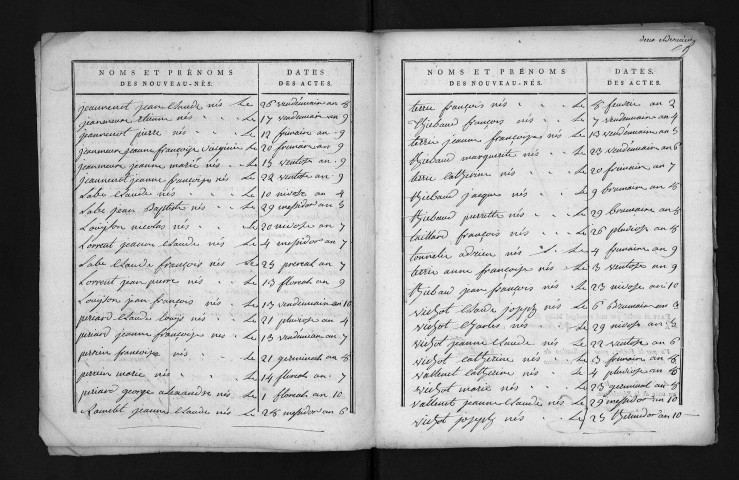 NOMS ET PRÉNOMS DES NOUVEAU-NÉS. DATES DES ACTES.
jeannenot jean claude nés le 26 vendémiaire an 8
jeannenot etienne nés le 17 vendémiaire an 9
jeannenot pierre nés le 12 frimaire an 9
jeanneneue jeanne françoise nés le 20 frimaire an 9
jeannenot jeanne marie nés le 15 ventose an 9
jeannenot jeanne françoise nés le 22 ventose an 9
Labe Claude nés le 10 nivose an 4
Labe jean Baptiste nés le 29 messidor an 5
Louison nicolas nés le 20 nivose an 7
Lorrent jeanne Claude nés le 4 messidor an 7
Labe Claude françois nés le 25 prereal an 7
Lorrent jean pierre nés le 13 floreal an 9
Louison jean françois nés le 13 vendemiaire an 10
periard Claude Louis nés le 21 pluviose an 4
periard jeanne françoise nés le 13 vendémiaire an 7
perrein françoise nés le 21 germinal an 8
perrein marie nés le 14 floreal an 7
periard george alexandre nés le 1 floreal an 10
Lamblet jeanne Claude nés le 28 messidor an 6
NOMS ET PRÉNOMS DES NOUVEAU-NÉS. DATES DES ACTES.
terrie françois nés le 8 fevrier an 2
thiebaud françois nés le 7 vendemiaire an 4
terrie jeanne françoise nés le 13 vendémiaire an 5
thiebaud marguerite nés le 23 vendémiaire an 6
terrie Catherine nés le 20 frimaire an 7
thiebaud jacque nés le 9 brumaire an 8
thiebaud pierrette nés le 29 brumaire an 8
taillard françois nés le 26 pluviose an 8
tonnelie adrien nés le 4 frimaire an 9
terrie anne françoise nés le 3 ventose an 9
thiebaud jean françois nés le 23 nivose an 10
vichot Claude joseph nés le 6 Brumaire an 3
vichot Charles nés le 29 nivose an 5
vichot jeanne Claude nés le 22 ventose an 6
vichot Catherine nés le 3 frimaire an 8
vallenet Catherine nés le 4 pluviose an 8
vichot marie nés le 23 germinal an 8
vallenet jeanne Claude nés le 29 messidor an 10
vichot joseph nés le 25 thermidor an 10